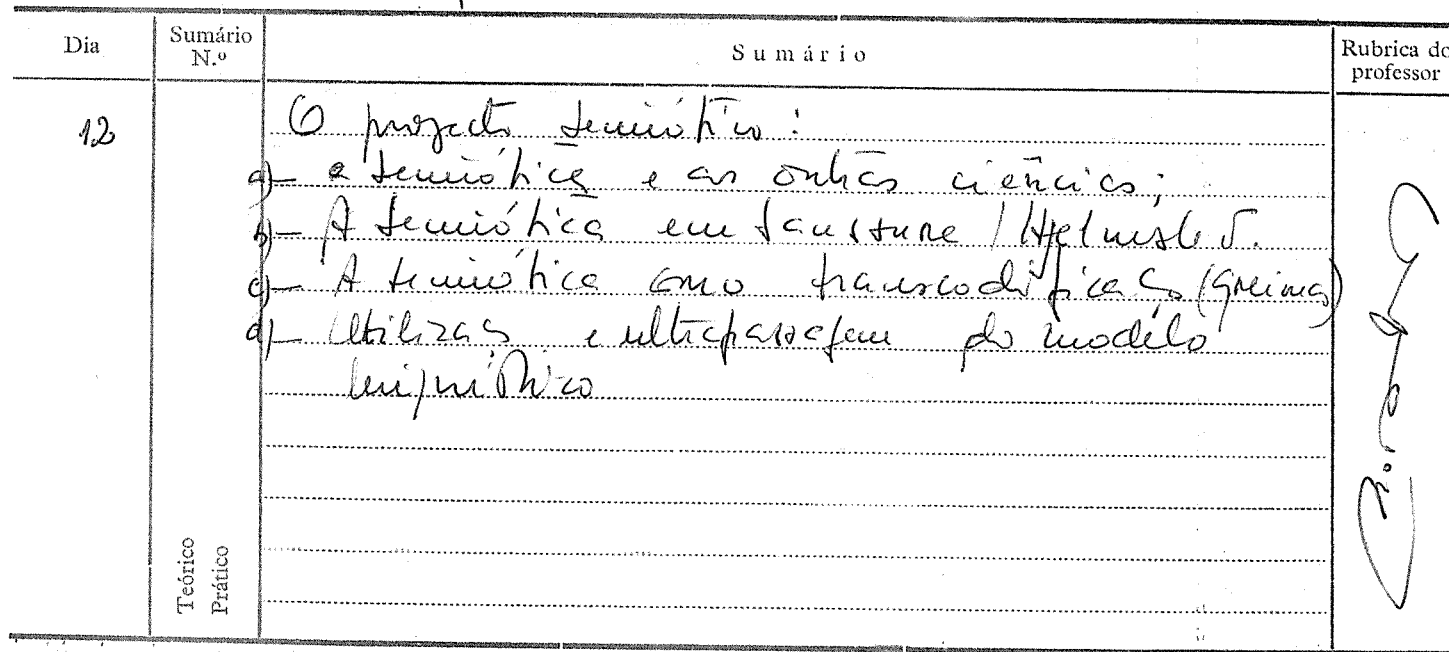 Dia
Sumário N.º
Sumário
Rubrica do professor
12
O projecto semiótico:
a) – a semiótica e as outras ciências;
b) – A semiótica em Saussure / Hjelmslev.
c) – A semiótica como transcodificação (Greimas)
d) – Utilização e ultrapassagem do modelo
linguístico
Teórico
Prático